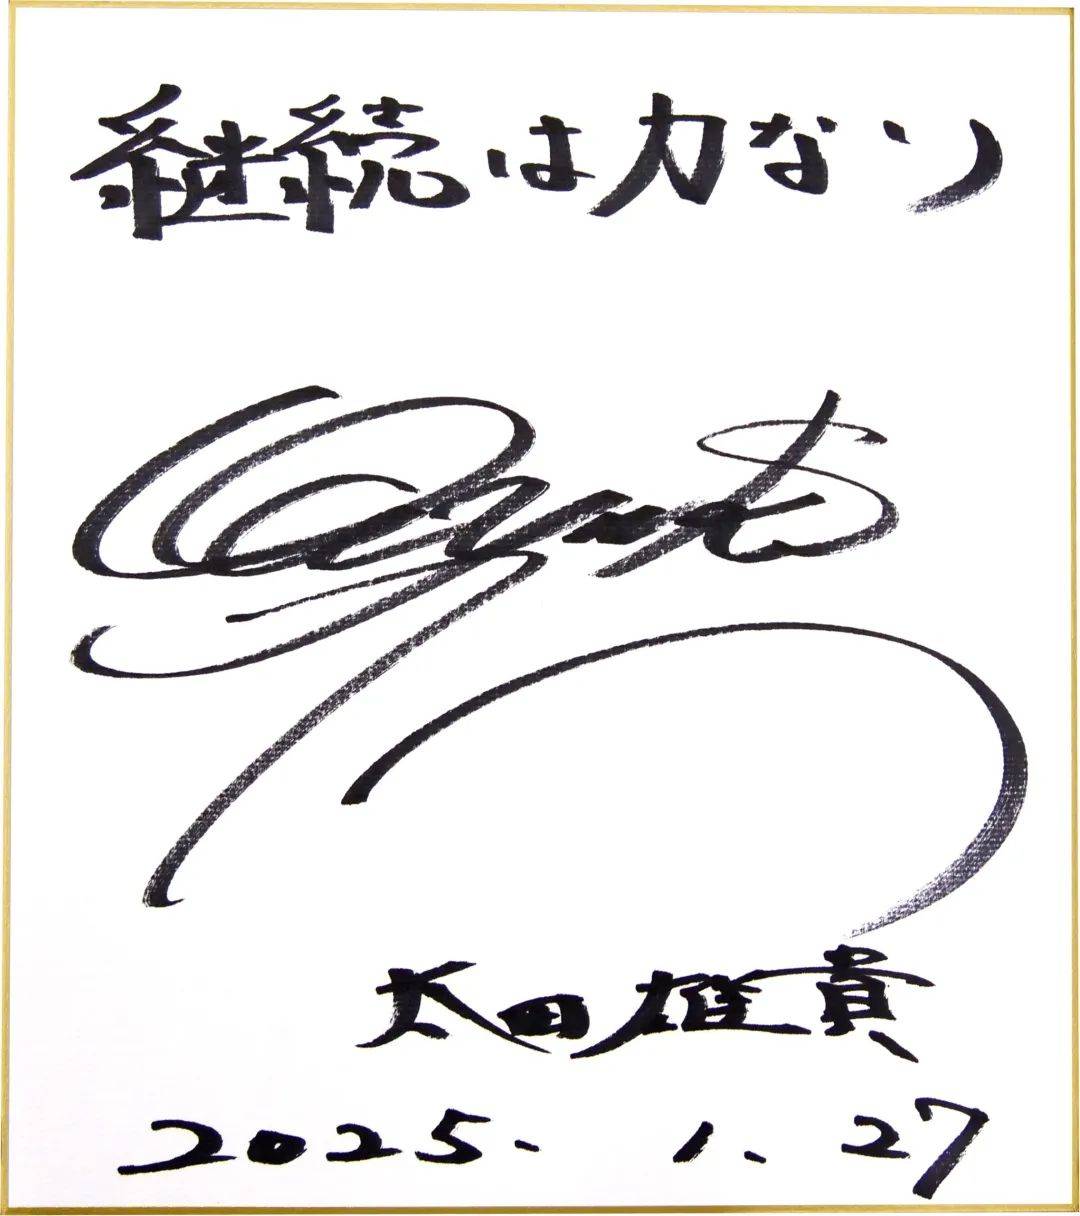 継続は力なり
太田雄貴
2025.1.27